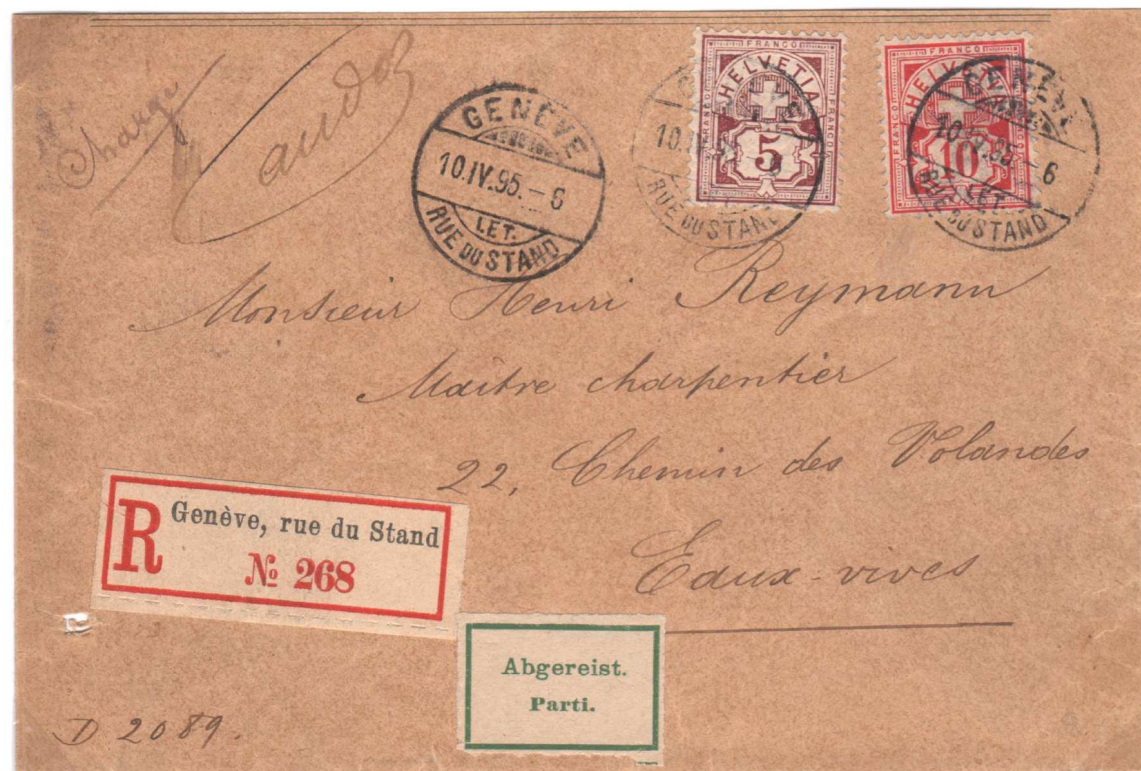 Chargé
GENÈVE
10.IV.95.-6
LET.
RUE DU STAND
FRANCO
HELVETIA
FRANCO
FRANCO
5
10.IV.
RUE DU STAND
FRANCO
HELVETIA
FRANCO
FRANCO
10
GENÈVE
10.IV.95.-6
LET.
RUE DU STAND
Monsieur Henri Reymann
Maître charpentier
22, Chemin des Volandes
Eaux-vives
R Genève, rue du Stand
№ 268
Abgereist.
Parti.
D 2089.